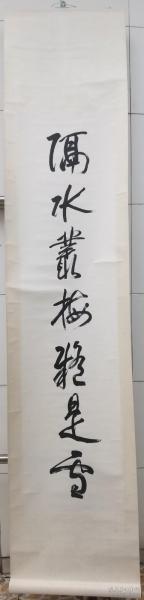 隔水叢梅疑是雪